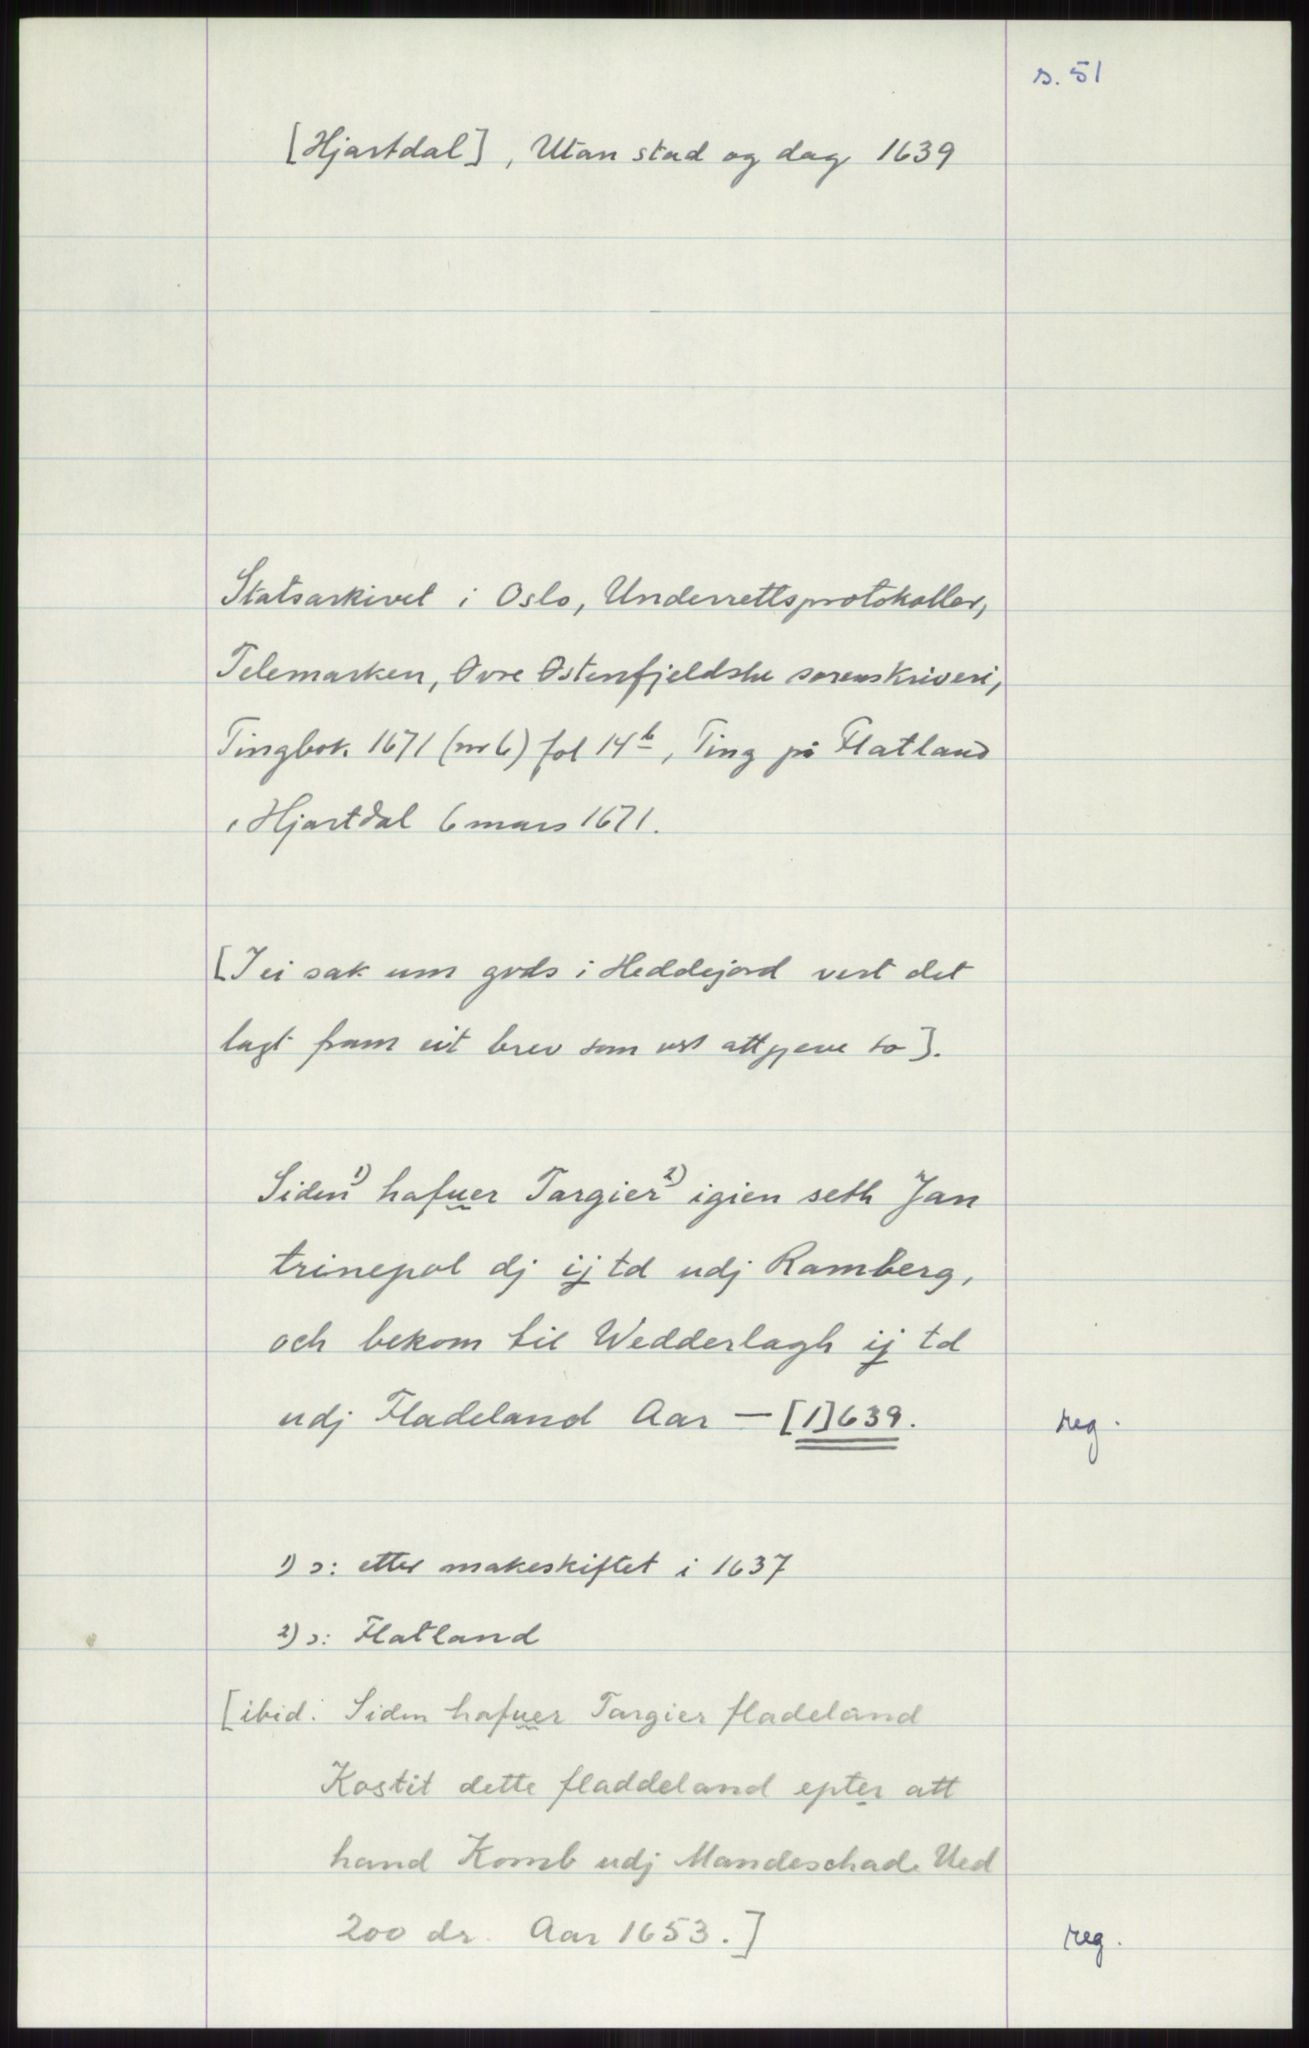 s. 51
[Hjartdal], Utan stad og dag 1639
Statsarkivet i Oslo, Underrettsprotokoller,
Telemarken, Øvre Østenfjeldske sorenskriveri,
Tingbok 1671 (nr 6) fol 14b, Ting på Flatland
i Hjartdal 6 mars 1671.
[I ei sak um gods i Heddejord vert det
lagt fram eit brev som vert attgjeve so].
Siden 1) hafuer Targier 2) igien seth Jan
trinepol dj ij td udj Ramberg,
och bekom til Wedderlagh ij td
udj Fladeland Aar — [1]639.
reg.
1) ɔ: etter makeskiftet i 1637
2) ɔ: Flatland
[ibid: Siden hafuer Targier fladeland
Kostit dette fladdeland epter att
hand Komb udj Mandeschade Ued
200 dr. Aar 1653.]
reg.